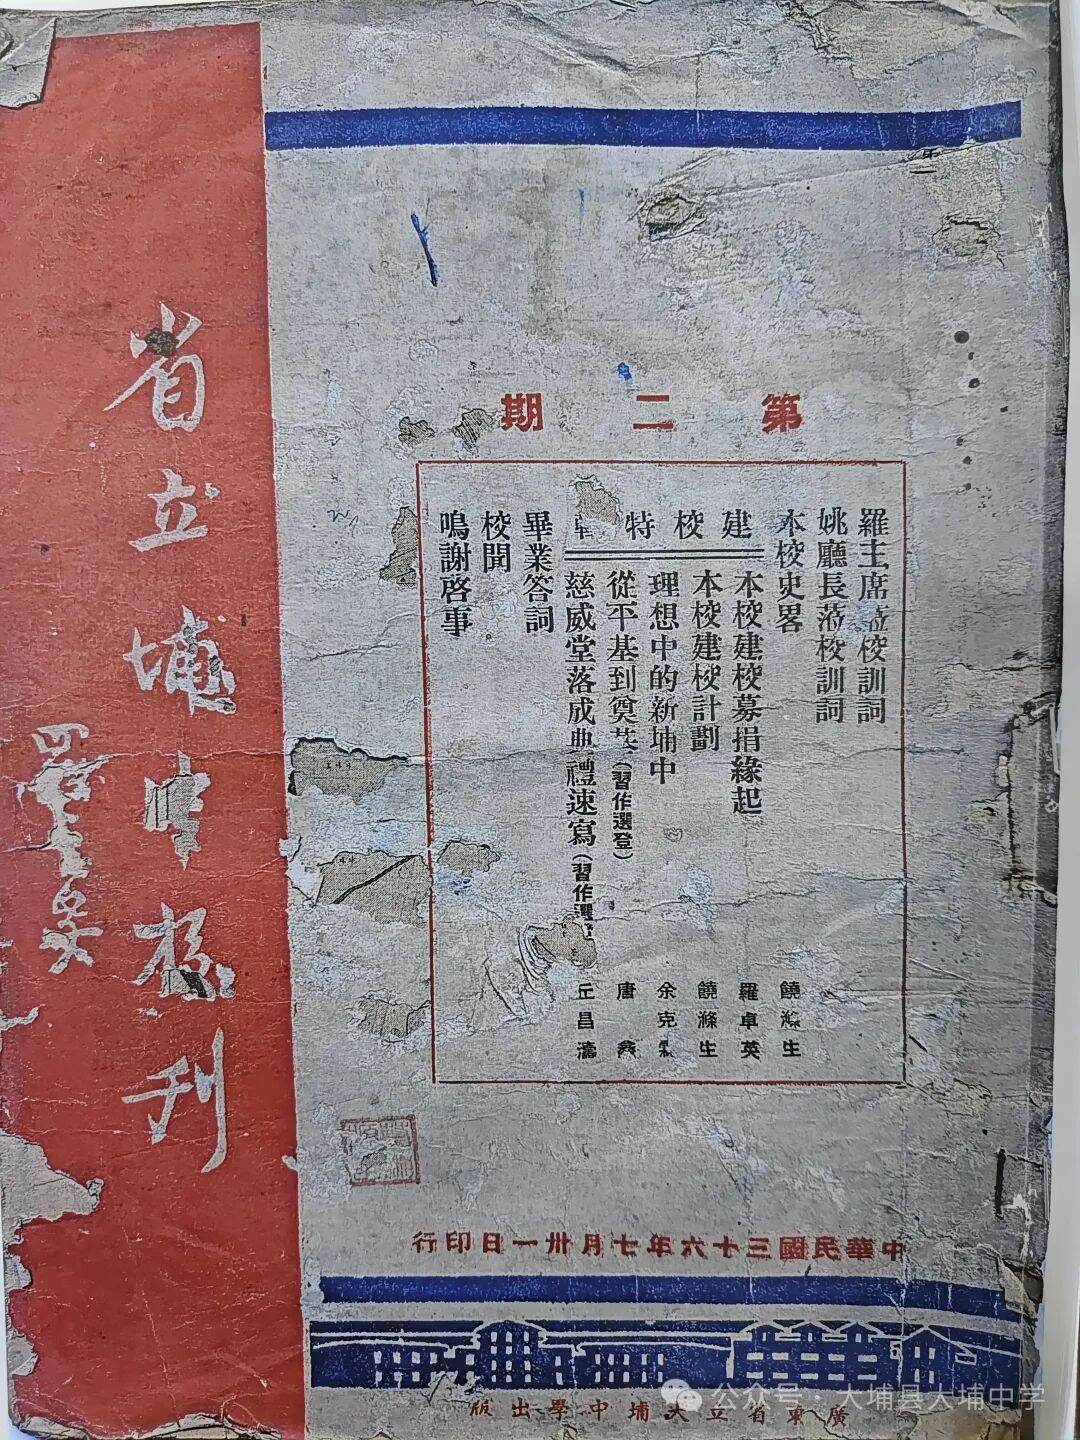 省立埔中校刊
第二期
羅主席蒞校訓詞
姚廳長蒞校訓詞
本校史畧 饒滌生
建校特輯
本校建校募捐緣起 羅卓英
本校建校計劃 饒滌生
理想中的新埔中 余克
從平基到奠基(習作選登) 唐
慈威堂落成典禮速寫(習作選 丘昌濤
畢業答詞
校聞
鳴謝啓事
中華民國三十六年七月卅一日印行
廣東省立大埔中學出版
公众号·大埔县大埔中学